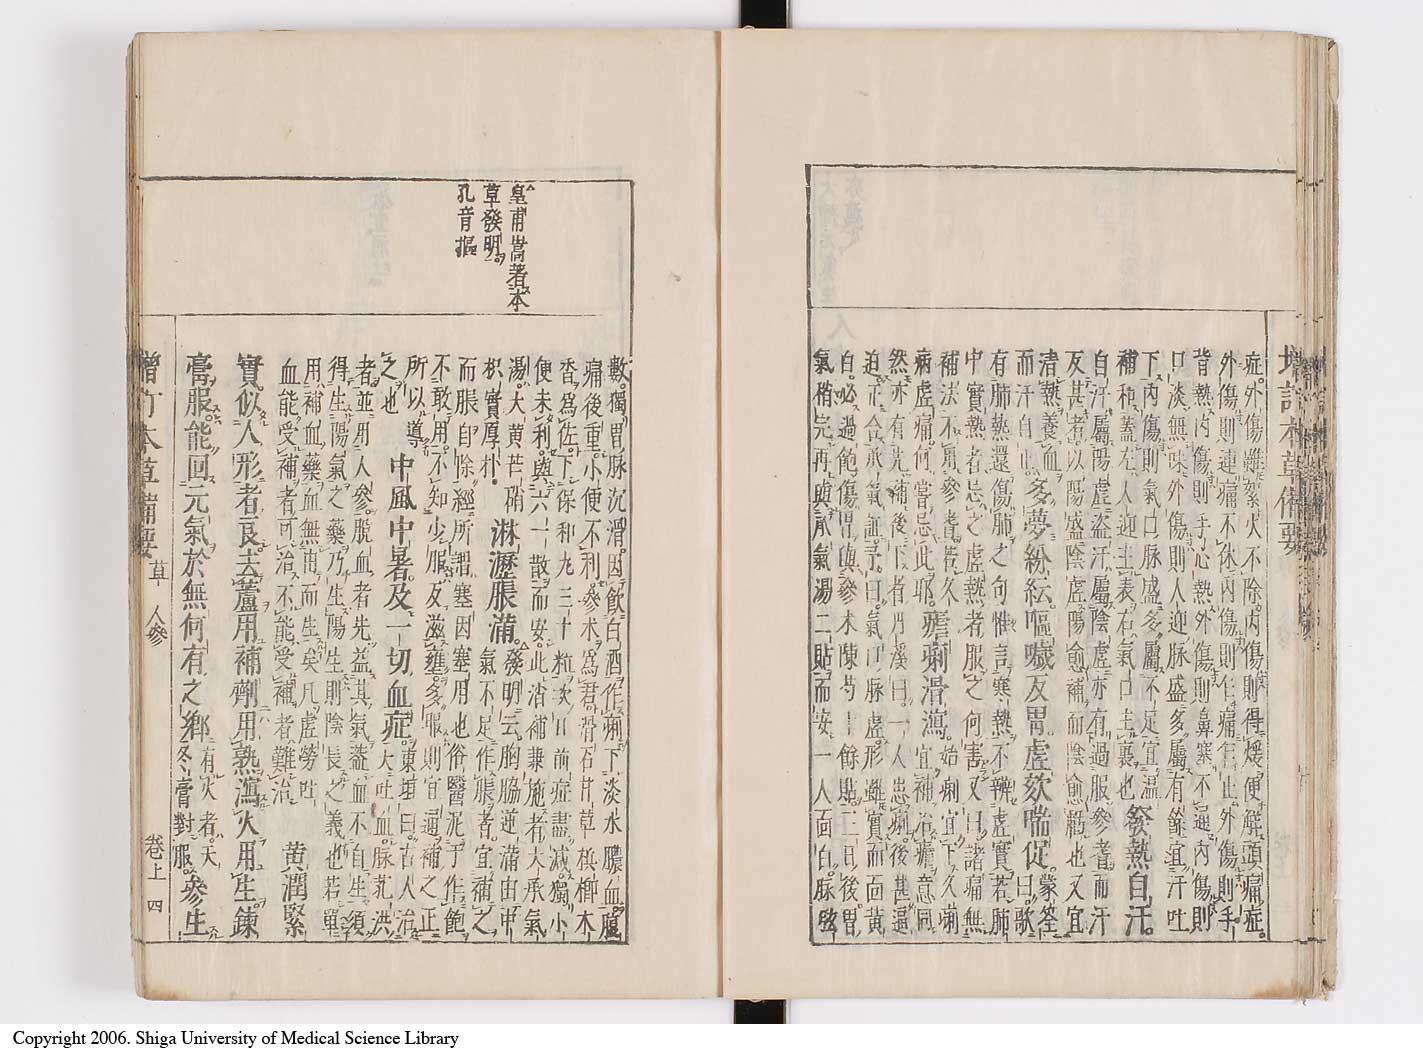 增訂本草備要
症。外傷雖緊火不除。內傷則得煖便解頭痛症。
外傷則連痛不休內傷則乍痛乍止外傷則手
背熱內傷則手心熱外傷則鼻塞不通內傷則
口淡無味外傷則人迎脉盛多屬有餘宜汗吐
下內傷則氣口脉盛多屬不足宜溫
補和蓋左人迎主表右氣口主裏也發熱自汗。
自汗屬陽虛盗汗屬陰虛亦有過服參耆而汗
反甚者以陽盛陰虛陽愈補而陰愈虧也又宜
清熱養血
而汗自止。多夢紛紜嘔噦反胃虛欬喘促。蒙筌曰歌
有肺熱還傷肺之句惟言寒熱不辨虛實若肺
中實熱者忌之虛熱者服之何害又曰諸痛無
補法不用參耆若久
病虛痛何嘗忌此耶。瘧痢滑瀉。始痢宜下久痢宜補治瘧意同
然亦有先補後下者丹溪曰。一人患痢後甚逼
迫。正合承氣証予曰氣口脉虛形雖實而面黃
白。必過飽傷胃與參朮陳芍十餘貼三日後胃
氣稍完再與承氣湯二貼而安一人面白。脉弦
皇甫嵩著本
草發明。
孔音摳
數。獨胃脉沉滑。因飲白酒作痢下淡水膿血。腹
痛後重。小便不利。參朮為君。滑石甘草檳榔木
香為佐。下保和丸三十粒次日前症盡減獨小
便未利。與六一散而安。此消補兼施者大承氣
湯。大黄芒硝
枳實厚朴。淋瀝脹滿。發明云胸脇逆滿由中氣不足作脹者宜補之
而脹自除經所謂塞因塞用也俗醫泥于作飽
不敢用。不知少服反滋壅。多服則宜通補之正
所以導
之也中風中暑及一切血症。東垣曰。古人治大吐血。脉芤洪
者並用人參。脫血者先益其氣蓋血不自生須
得生陽氣之藥乃生陽生則陰長之義也若單
用補血藥血無由而生矣凡虛勞吐
血能受補者可治不能受補者難治黄潤緊
實似人形者良去蘆用補劑用熟瀉火用生鍊
膏服。能回元氣於無何有之鄉有火者。天冬膏對服。參生
增訂本草備要 草 人參 卷上 四